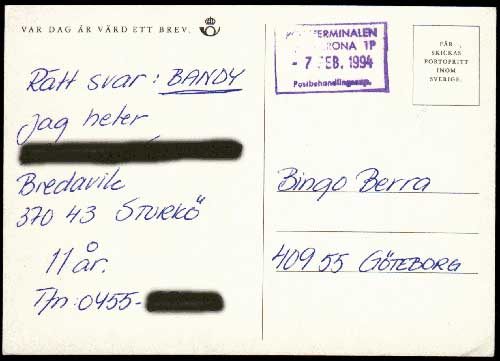 VAR DAG ÄR VÄRD ETT BREV.
Rätt svar: BANDY
jag heter
Bredavik
370 43 STURKÖ
11 år.
Tfn: 0455-
TERMINALEN
RONA 1P
- 7 FEB. 1994
Postbehandlingsexp.
FÅR
SKICKAS
PORTOFRITT
INOM
SVERIGE.
Bingo Berra
409 55 GÖTEBORG